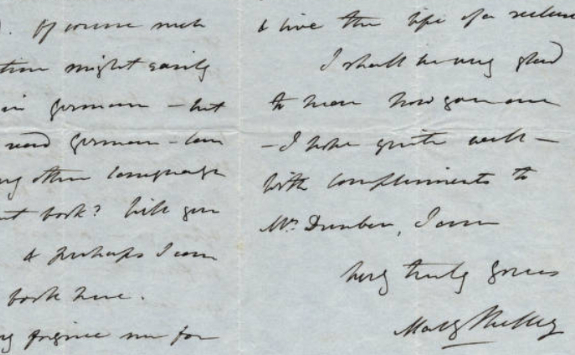 Of course such
might easily
in german – but
read german – can
other language
book? Will you
& perhaps I can
book here.
forgive me for
& live the life of a recluse
I shall be very glad
to hear how you are
– I hope quite well –
With compliments to
Mr. Dunbar, I am
Very truly yours
MaryShelley